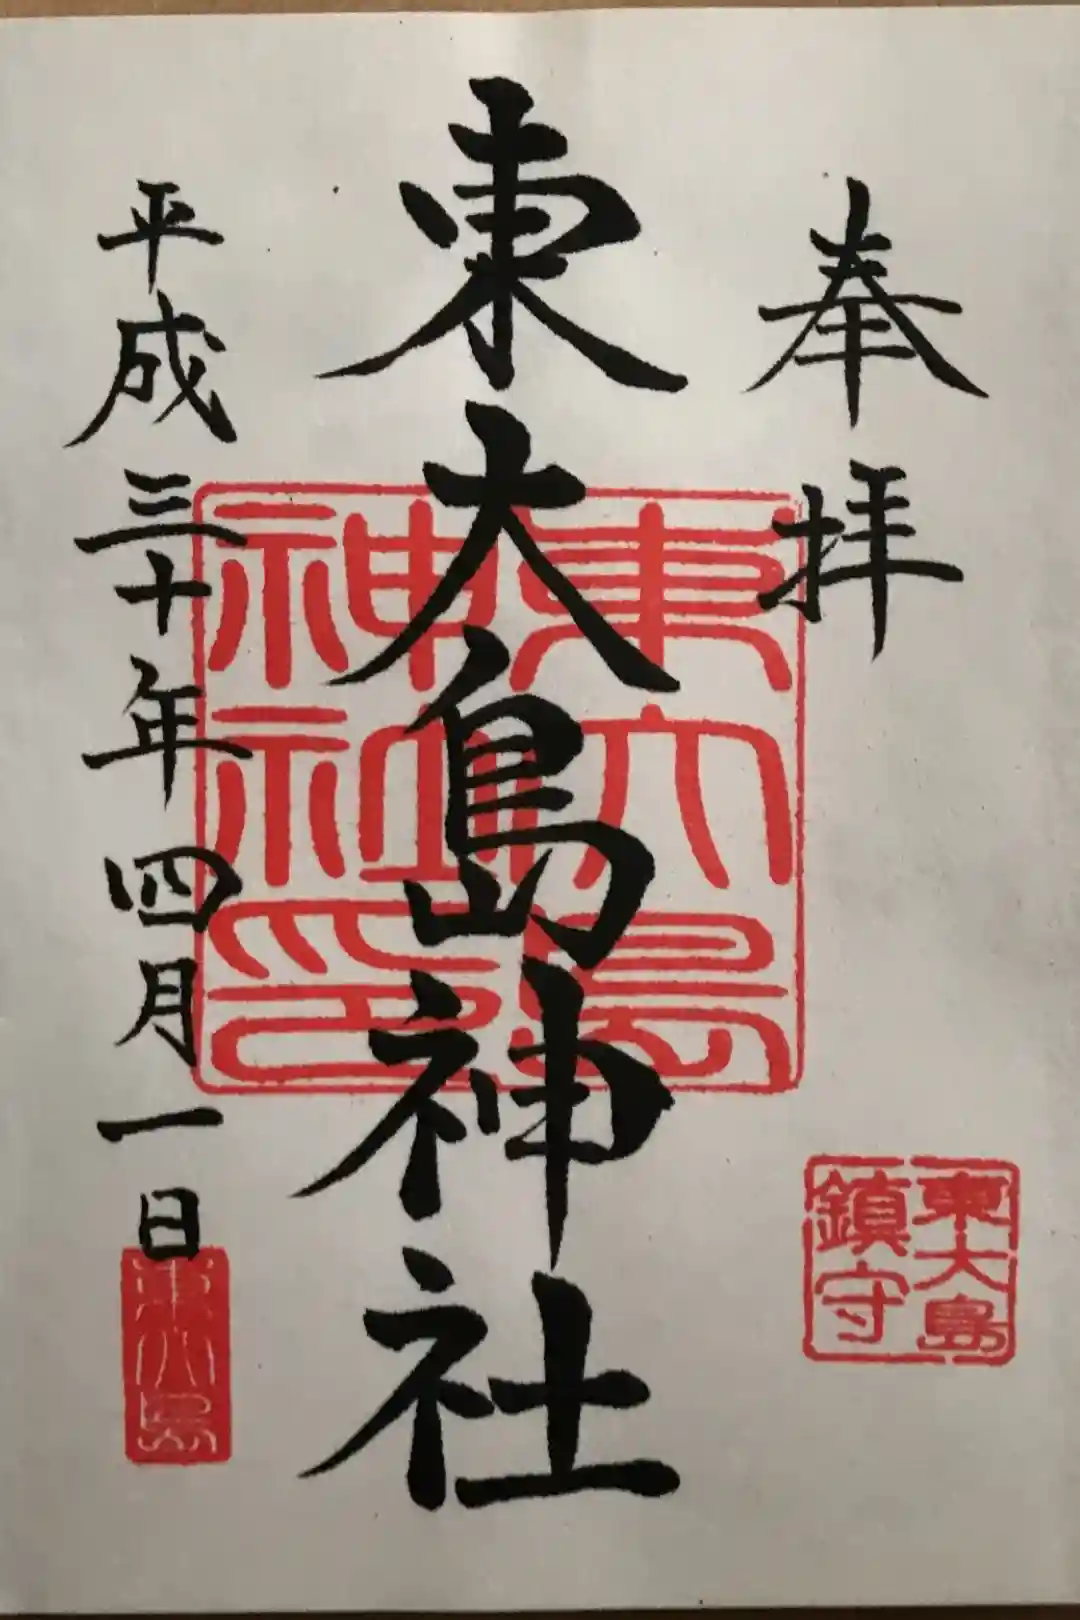 奉拝
東大島
鎮守
東大島神社
東大島
神社印
平成三十年四月一日
東大島